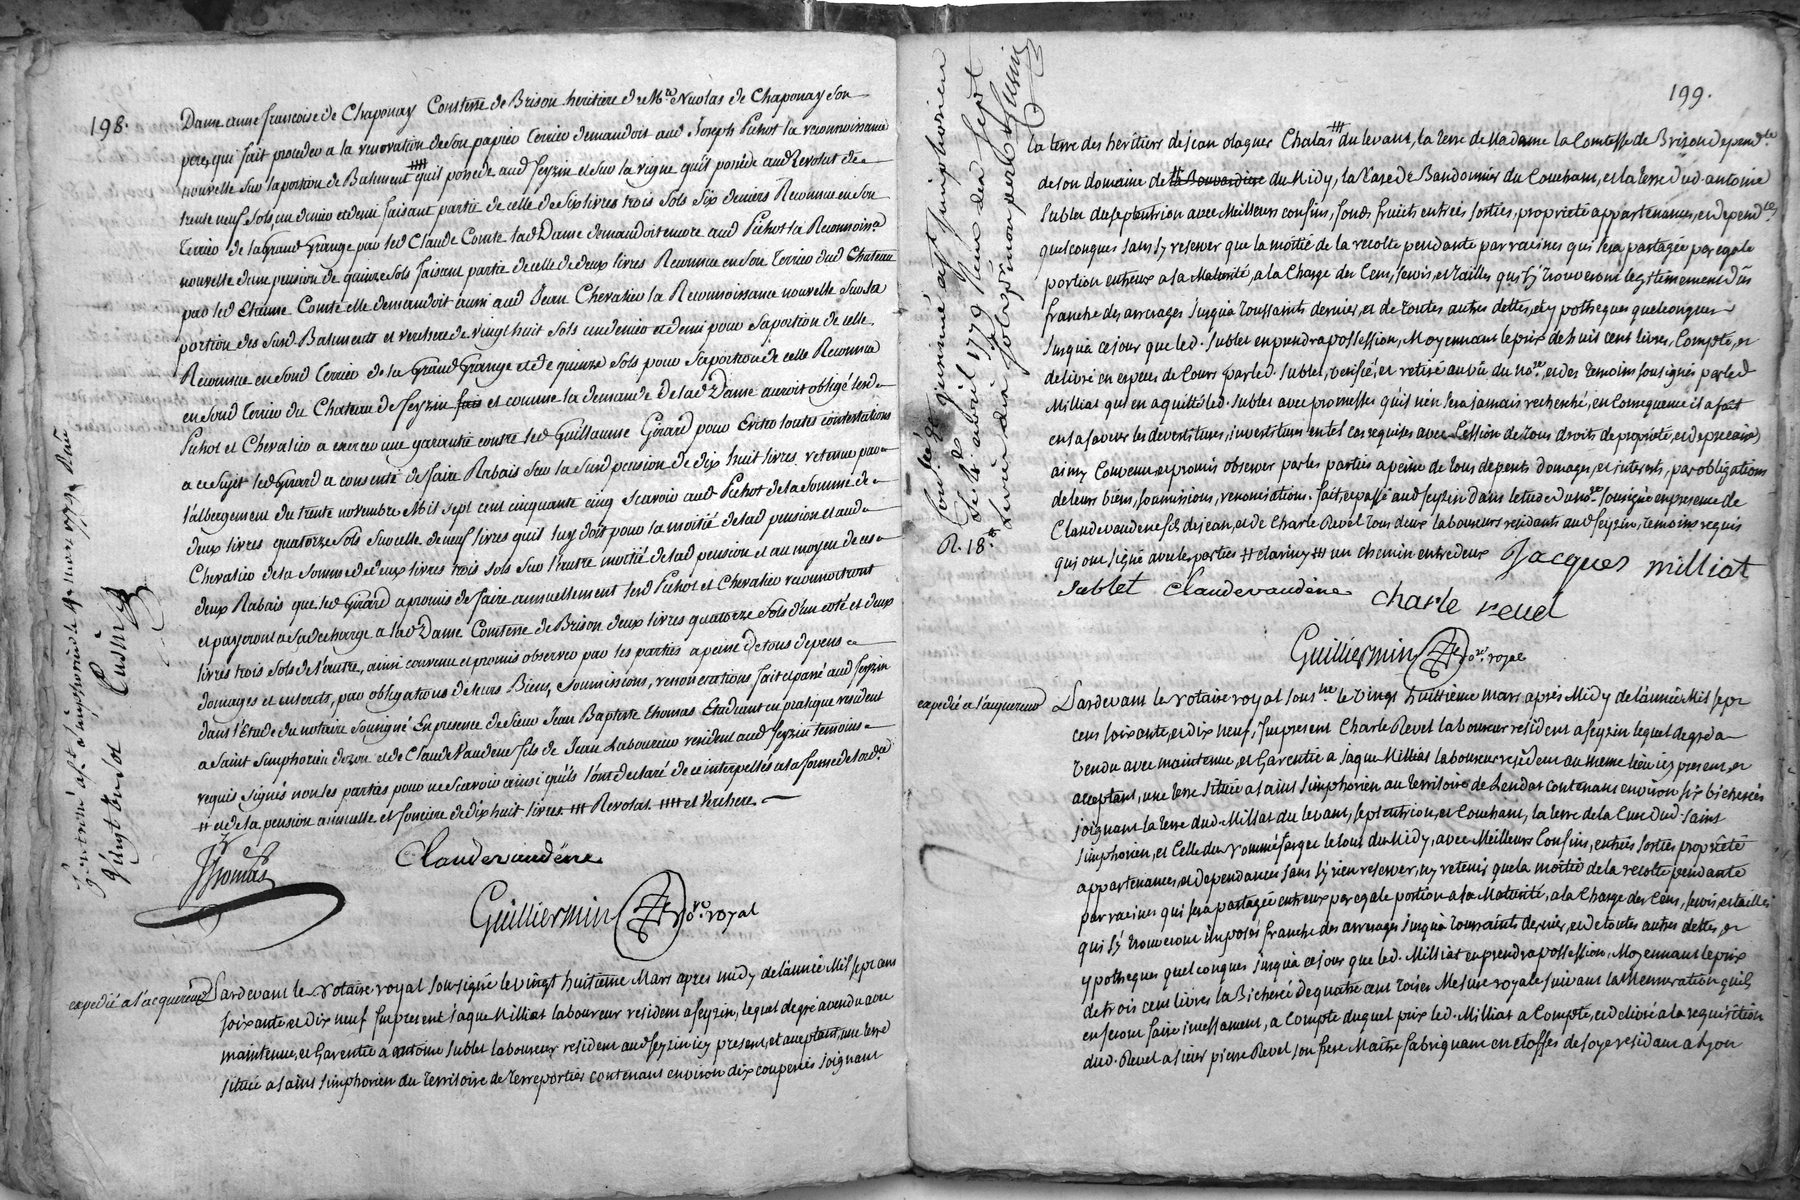 198.
Dame anne françoise de Chaponay Comtesse de Brison heritiere de Mre Nicolas de Chaponay son
pere, qui fait proceder a la renovation de son papier terrier demandoit aud Joseph Pichot la reconnoissance
nouvelle sur la portion de Batiment qu'il possede aud feyzin et sur la vigne qu'il possede aud Revolat de
trente neuf sols, un denier et demi faisant partie de celle de six livres trois sols six deniers Reconnue en son
terrier de la Grand Grange par led Claude Comte lad Dame demandoit encore aud Pichot la Reconnoisce
nouvelle d'une pension de quinze sols faisant partie de celle de deux livres Reconnue en son terrier dud Chateau
par led Etienne Comte elle demandoit aussi aud Jean Chevalier la Reconnoissance nouvelle sur sa
portion des susd Batiments et verchere de vingt huit sols un denier et demi pour sa portion de celle
Reconnue en sond terrier de la Grand Grange et de quinze sols pour sa portion de celle Reconnue
en sond terrier du Chateau de feyzin et comme la demande de lad Dame auroit obligé lesd
Pichot et Chevalier a exercer une garantie contre led Guillaume Girard pour Eviter toutes contestations
a ce sujet led Girard a consenti de faire Rabais sur la susd pension de dix huit livres retenue par
l'albergement du trente novembre Mil sept cent cinquante cinq scavoir aud Pichot de la somme de
deux livres quatorze sols sur celle de neuf livres qu'il luy doit pour la moitié de lad pension et aud
Chevalier de la somme de deux livres trois sols sur l'autre moitié de lad pension et au moyen de ces
deux Rabais que led Girard a promis de faire annuellement lesd Pichot et Chevalier reconnoitront
et payeront a sa decharge a lad Dame Comtesse de Brison deux livres quatorze sols d'un coté et deux
livres trois sols de l'autre, ainsi convenu et promis observer par les parties a peine de tous depens
domages et interets, par obligations de leurs Biens, soumissions, renonciations fait et passé aud feyzin
dans l'Etude du notaire soussigné En presence de sieur Jean Baptiste thomas Etudiant en pratique resident
a Saint Simphorien dozon et de Claude Vaudene fils de Jean Laboureur resident aud feyzin temoins
requis signés non les parties pour ne scavoir ainsi qu'ils l'ont declaré de ce interpellés a la forme de l'ordce
# et de la pension annuelle et fonciere de dix huit livres ## Revolat ### et verchere
Thomas
Claudevaudéne
Guilliermin nore royal
expedié a l'acquereur
Pardevant le notaire royal soussigné le vingt huitieme Mars apres midy de l'année Mil sept cens
soixante et dix neuf fut present Jaque Milliat laboureur resident a feyzin, lequel de gré a vendu avec
maintenue, et garentie a antoine sublet laboureur resident aud feyzin icy present, et acceptant, une terre
située a saint simphorien du territoire de terreporties contenant environ dix couperées joignant
199.
la terre des heritiers de jean olagner Chalas ### du levant, la terre de Madame la Comtesse de Brizon dependte
de son domaine de du Midy, la Vase de Bandonnier du Couchant, et la terre dud antoine
sublet du septentrion avec Meilleurs confins, fonds fruits entrées sorties, proprieté appartenances, et dependces
quelconques sans s'y reserver que la moitié de la recolte pendante par racines qui sera partagée par egale
portion entreux a sa Maturité, a la Charge des Cens, servis, et tailles qui s'y trouveront legitimement dûs
franche des arrerages jusqua toussaints dernier, et de toutes autres dettes, et ypotheques quelconques
jusqua ce jour que led. sublet en prendra possession, Moyennant le prix de huit cent livres, Compté, et
delivré en especes de Cours par led sublet, verifié, et retiré au vû du nore, et des temoins soussignés par led
Milliat qui en a quitté led. sublet avec promesses qu'il n'en sera jamais recherché, en Consequence il a fait
en sa faveur les devestitures, investitures en tel cas requises avec Cession de tous droits de proprieté, et de precaire
ainsy Convenu, et promis observer par les parties a peine de tous depents domages, et interets, par obligations
de leurs biens, soumissions, renonciations. fait, et passé aud feyzin dans letude dud nore soussigné en presence de
Claudevaudene fils de jean, et de Charle Revel tous deux laboureurs residants aud feyzin, temoins requis
qui ont signé avec les parties ### un chemin entredeux Jacques milliat
Sublet Claudevaudéne Charle revel
Guilliermin nore royal
expedié a l'aquereur
Pardevant le notaire royal sousné le vingt huittieme mars après Midy de l'année Mil sept
cent soixante, et dix neuf, fut present Charle Revel laboureur resident a feyzin lequel de gré a
vendu avec maintenue, et Garentie a Jaque Milliat laboureur resident au meme lieu icy present, et
acceptant, une terre située a saint simphorien au territoire de Lendas contenant environ six bicherées
joignant la terre dud. Milliat du levant, septentrion, et Couchant, la terre de la Cure dud. saint
simphorien, et Celle du nommé du Midy, avec Meilleurs Confins, entrées sorties proprieté
appartenances, et dependances sans s'y rien reserver, ny retenir que la moitié de la recolte pendante
par racines qui sera partagée entreux par egale portion a sa Maturité, a la Charge des Cens, servis, et tailles
qui s'y trouveront imposés franche des arrerages jusqua toussaints dernier, et de toutes autres dettes, et
ypotheques quelconques jusqua ce jour que led. Milliat en prendra possession, Moyennant le prix
de trois cent livres la Bicherée de quatre cent toises Mesure royale suivant la Mensuration qu'ils
en feront faire incessament, a Compte duquel prix led. Milliat a Compté, et delivré a la requisition
dud. Revel a sieur pierre Revel son frere Maitre fabriquant en etoffes de soye resident a Lyon